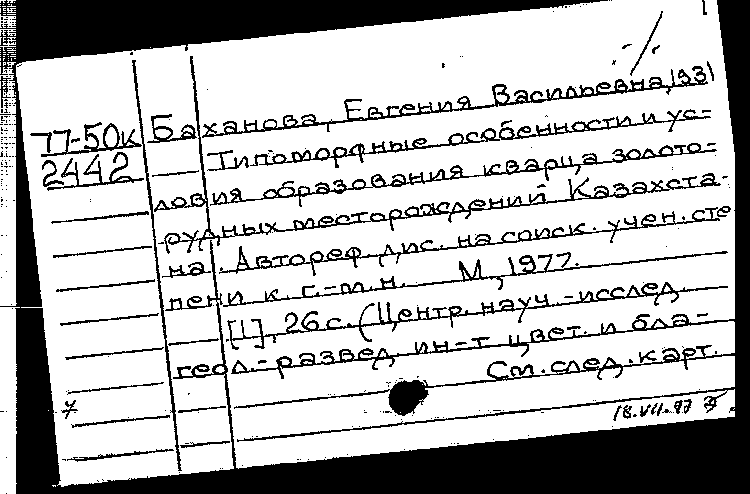 77-50к Баханова, Евгения Васильевна, 1931
2442 Типоморфные особенности и ус-
ловия образования кварца золото-
рудных месторождений Казахста-
на. Автореф. дис. на соиск. учен. сте
пени к. г.-м. н. М., 1977.
[1], 26 с. (Центр. науч.-исслед.
геол.-развед. ин-т цвет. и бла-
См. след. карт.